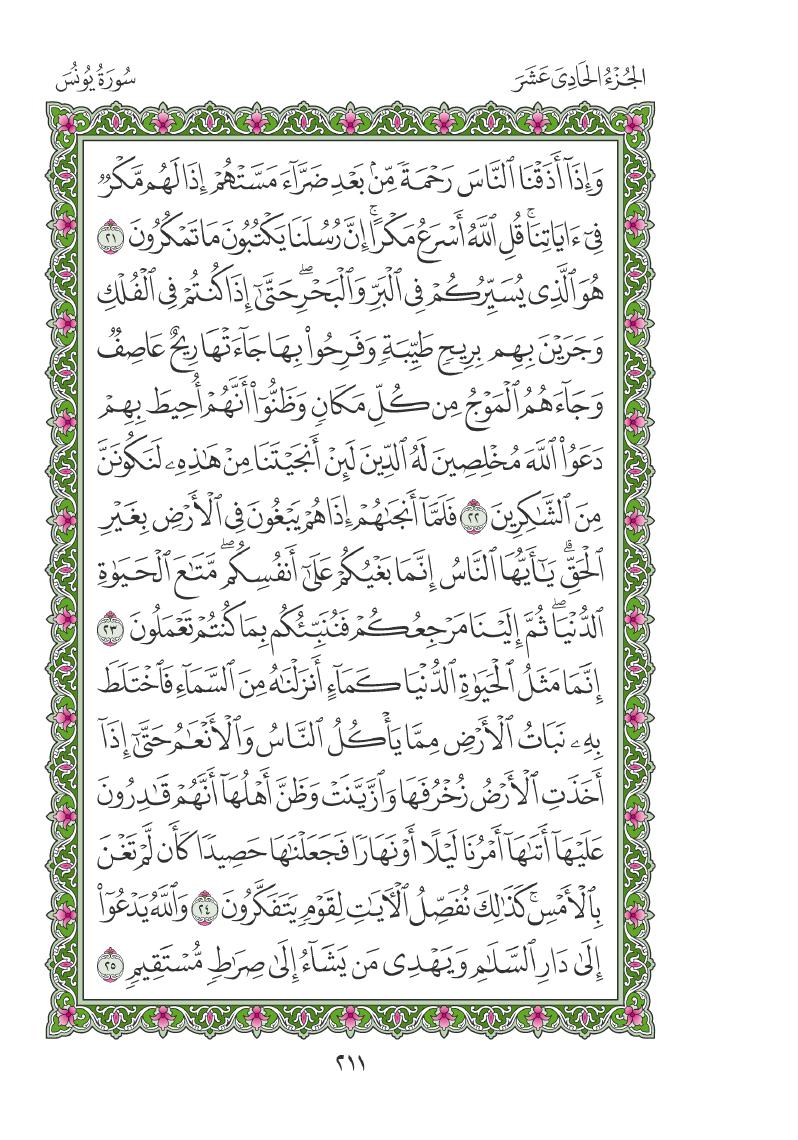 الجُزْءُ الحَادِىَ عَشَرَ
سُورَةُ يُونُسَ
وَإِذَآ أَذَقْنَا ٱلنَّاسَ رَحْمَةً مِّنۢ بَعْدِ ضَرَّآءَ مَسَّتْهُمْ إِذَا لَهُم مَّكْرٌ
فِىٓ ءَايَاتِنَاۚ قُلِ ٱللَّهُ أَسْرَعُ مَكْرًاۚ إِنَّ رُسُلَنَا يَكْتُبُونَ مَا تَمْكُرُونَ ٢١
هُوَ ٱلَّذِى يُسَيِّرُكُمْ فِى ٱلْبَرِّ وَٱلْبَحْرِۖ حَتَّىٰٓ إِذَا كُنتُمْ فِى ٱلْفُلْكِ
وَجَرَيْنَ بِهِم بِرِيحٍ طَيِّبَةٍ وَفَرِحُوا۟ بِهَا جَآءَتْهَا رِيحٌ عَاصِفٌ
وَجَآءَهُمُ ٱلْمَوْجُ مِن كُلِّ مَكَانٍ وَظَنُّوٓا۟ أَنَّهُمْ أُحِيطَ بِهِمْ
دَعَوُا۟ ٱللَّهَ مُخْلِصِينَ لَهُ ٱلدِّينَ لَئِنْ أَنجَيْتَنَا مِنْ هَٰذِهِۦ لَنَكُونَنَّ
مِنَ ٱلشَّٰكِرِينَ ٢٢ فَلَمَّآ أَنجَىٰهُمْ إِذَا هُمْ يَبْغُونَ فِى ٱلْأَرْضِ بِغَيْرِ
ٱلْحَقِّۗ يَٰٓأَيُّهَا ٱلنَّاسُ إِنَّمَا بَغْيُكُمْ عَلَىٰٓ أَنفُسِكُمۖ مَّتَٰعَ ٱلْحَيَوٰةِ
ٱلدُّنْيَاۖ ثُمَّ إِلَيْنَا مَرْجِعُكُمْ فَنُنَبِّئُكُم بِمَا كُنتُمْ تَعْمَلُونَ ٢٣
إِنَّمَا مَثَلُ ٱلْحَيَوٰةِ ٱلدُّنْيَا كَمَآءٍ أَنزَلْنَٰهُ مِنَ ٱلسَّمَآءِ فَٱخْتَلَطَ
بِهِۦ نَبَاتُ ٱلْأَرْضِ مِمَّا يَأْكُلُ ٱلنَّاسُ وَٱلْأَنْعَٰمُ حَتَّىٰٓ إِذَآ
أَخَذَتِ ٱلْأَرْضُ زُخْرُفَهَا وَٱزَّيَّنَتْ وَظَنَّ أَهْلُهَآ أَنَّهُمْ قَٰدِرُونَ
عَلَيْهَآ أَتَىٰهَآ أَمْرُنَا لَيْلًا أَوْ نَهَارًا فَجَعَلْنَٰهَا حَصِيدًا كَأَن لَّمْ تَغْنَ
بِٱلْأَمْسِۚ كَذَٰلِكَ نُفَصِّلُ ٱلْءَايَٰتِ لِقَوْمٍ يَتَفَكَّرُونَ ٢٤ وَٱللَّهُ يَدْعُوٓا۟
إِلَىٰ دَارِ ٱلسَّلَٰمِ وَيَهْدِى مَن يَشَآءُ إِلَىٰ صِرَٰطٍ مُّسْتَقِيمٍ ٢٥
٢١١